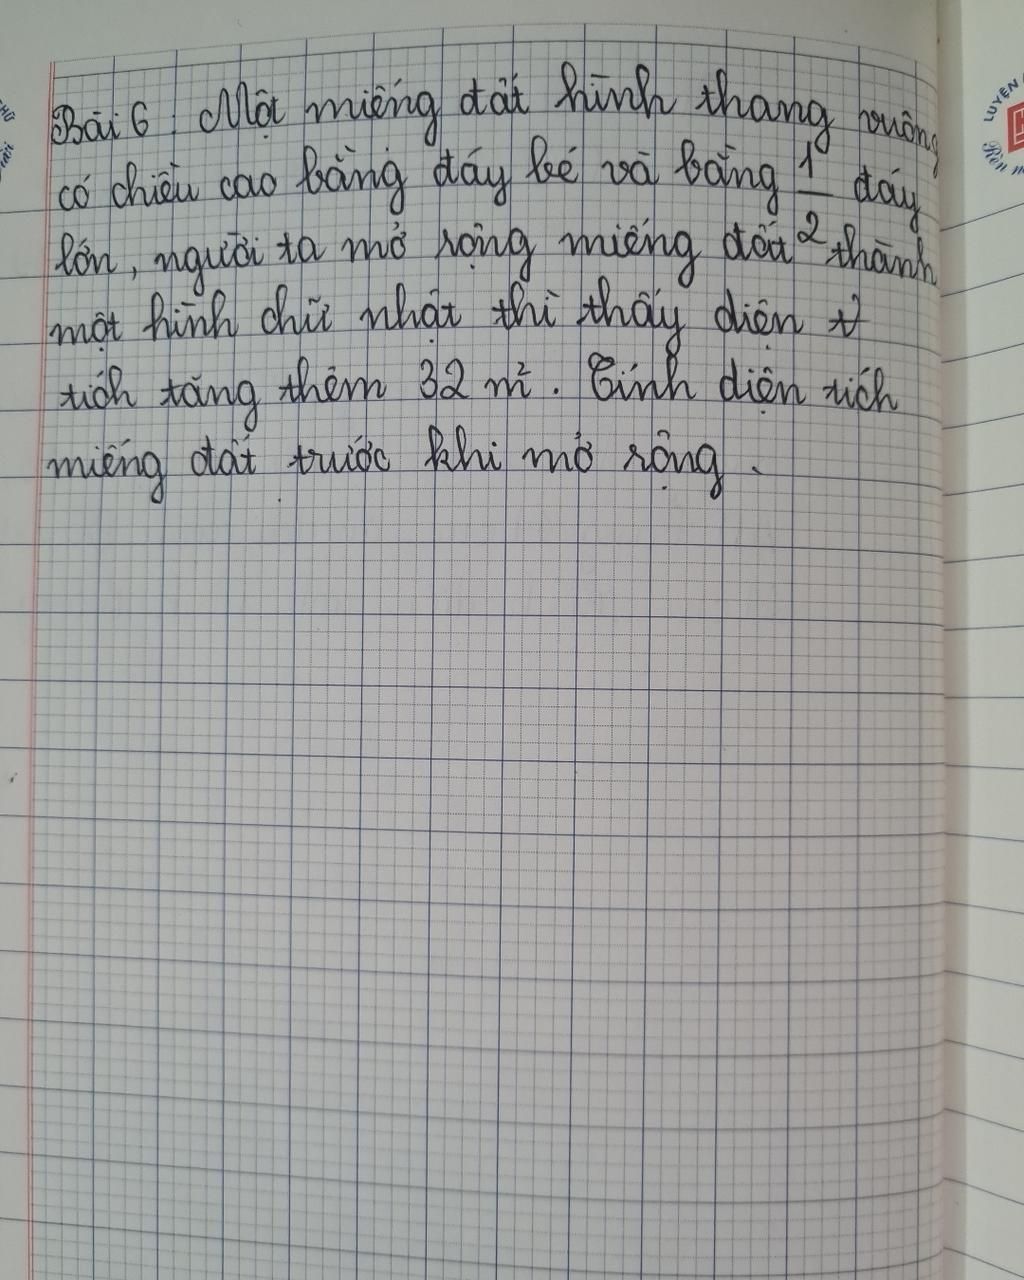 Bài 6 : Một miếng đất hình thang vuông
có chiều cao bằng đáy bé và bằng 1/2 đáy
lớn, người ta mở rộng miếng đất thành
một hình chữ nhật thì thấy diện t
tích tăng thêm 32 m². Tính diện tích
miếng đất trước khi mở rộng.
LUYỆN
Rèn n